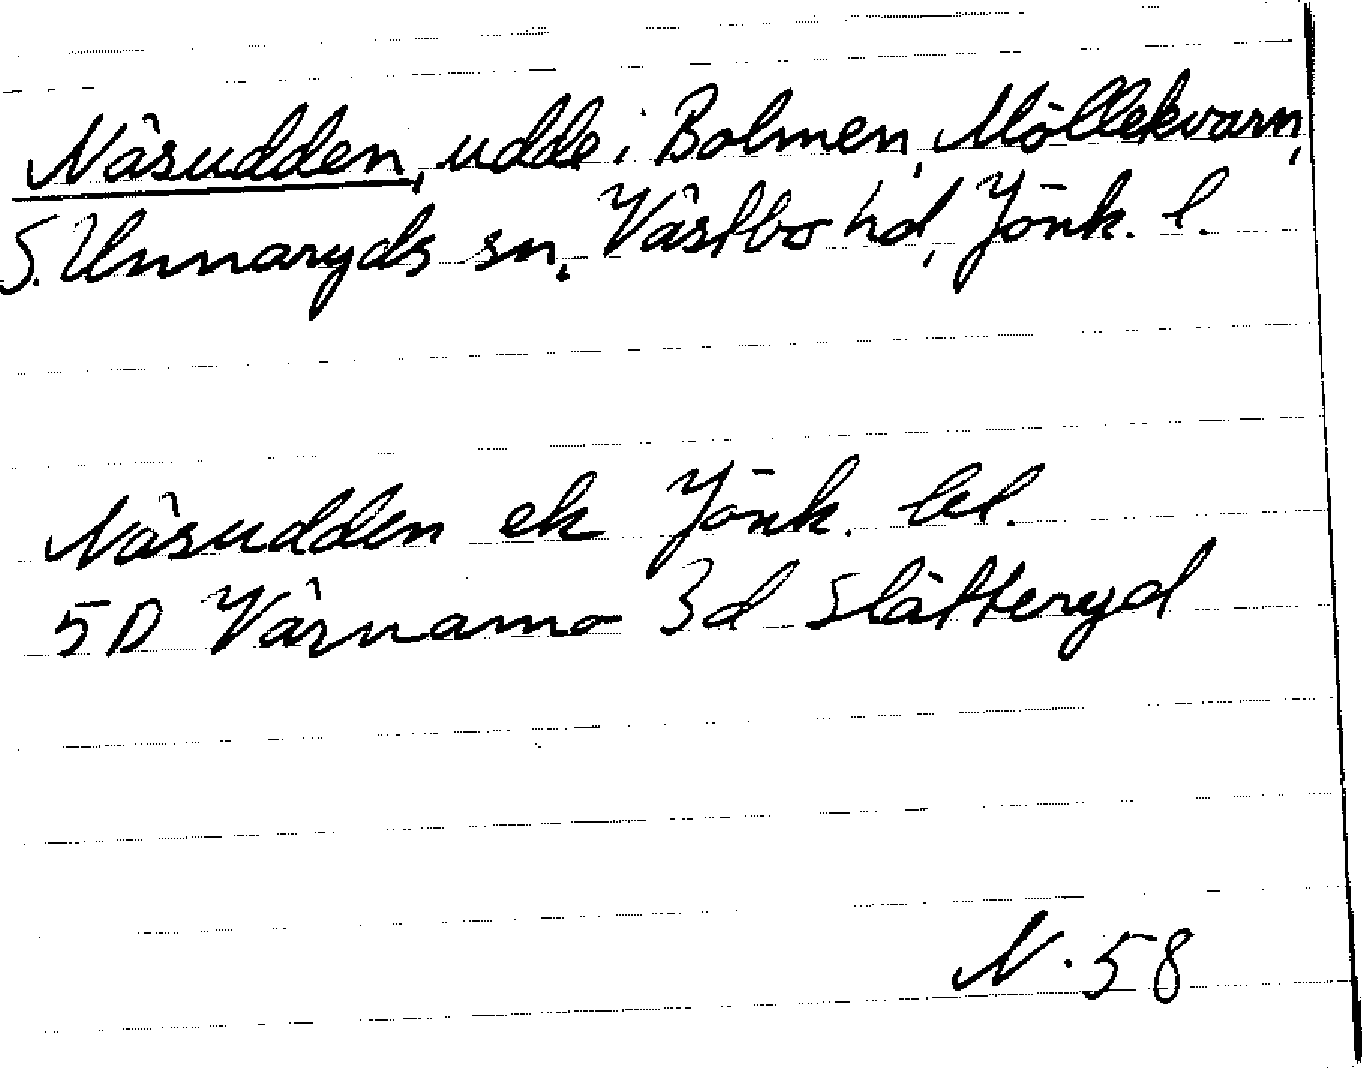 Näsudden, udde i Bolmen, Möllekvarn,
S. Unnaryds sn, Västbo hd, Jönk. l.
Näsudden ek Jönk. bl.
5D Värnamo 3d Slätteryd
N. 58